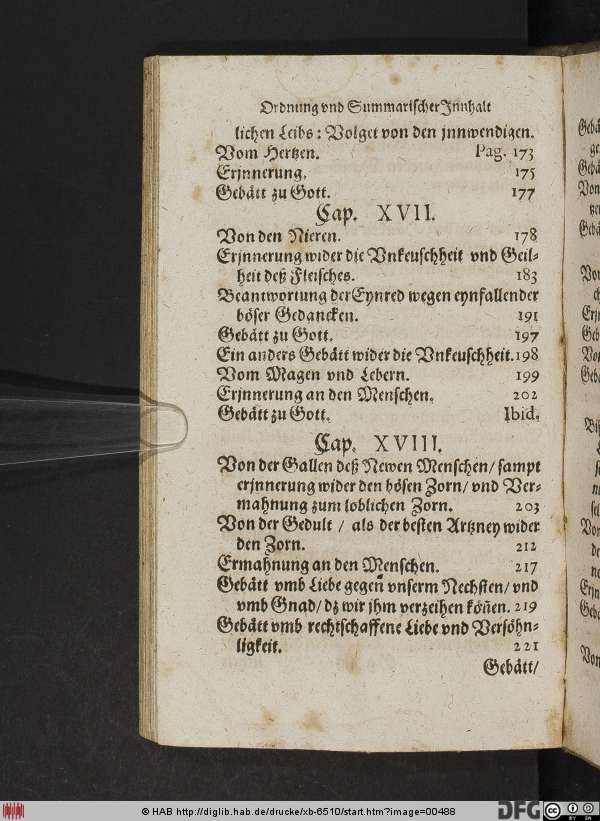 Ordnung vnd Summarischer Jnnhalt
lichen Leibs: Volget von den jnnwendigen.
Vom Hertzen. Pag. 173
Erjnnerung. 175
Gebätt zu Gott. 177
Cap. XVII.
Von den Nieren. 178
Erjnnerung wider die Vnkeuschheit vnd Geil-
heit deß Fleisches. 183
Beantwortung der Eynred wegen eynfallender
böser Gedancken. 191
Gebätt zu Gott. 197
Ein anders Gebätt wider die Vnkeuschheit. 198
Vom Magen vnd Lebern. 199
Erjnnerung an den Menschen. 202
Gebätt zu Gott. Ibid.
Cap. XVIII.
Von der Gallen deß Newen Menschen/ sampt
erjnnerung wider den bösen Zorn/ vnd Ver-
mahnung zum loblichen Zorn. 203
Von der Gedult / als der besten Artzney wider
den Zorn. 212
Ermahnung an den Menschen. 217
Gebätt vmb Liebe gegen vnserm Nechsten/ vnd
vmb Gnad/ dz wir jhm verzeihen köñen. 219
Gebätt vmb rechtschaffene Liebe vnd Versöhn-
ligkeit. 221
Gebätt/
© HAB http://diglib.hab.de/drucke/xb-6510/start.htm?image=00488
DFG